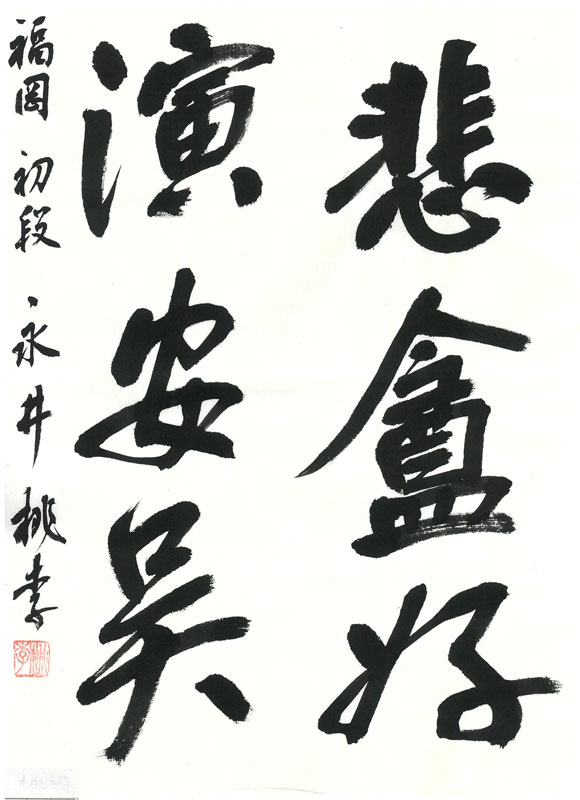 悲盦好
演安吴
福岡 初段 永井桃李